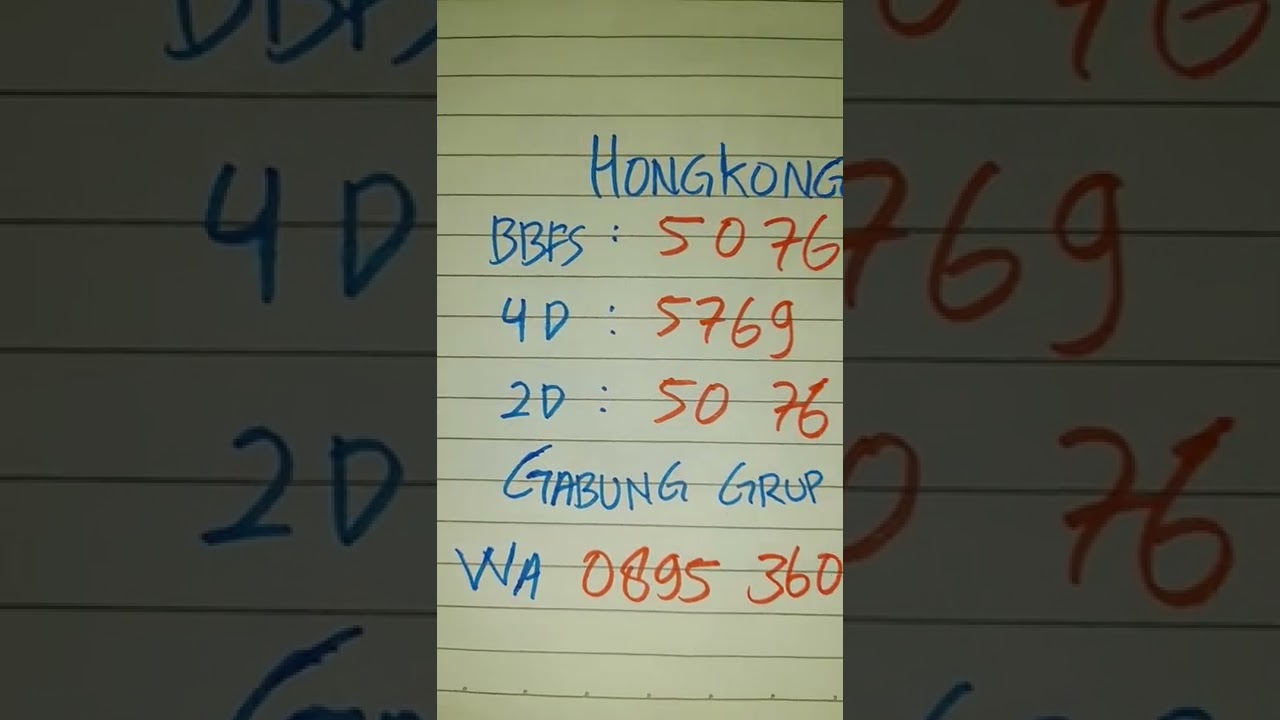 HONGKONG
BBFS : 5076
4D : 5769
2D : 50 76
GABUNG GRUP
WA 0895 360